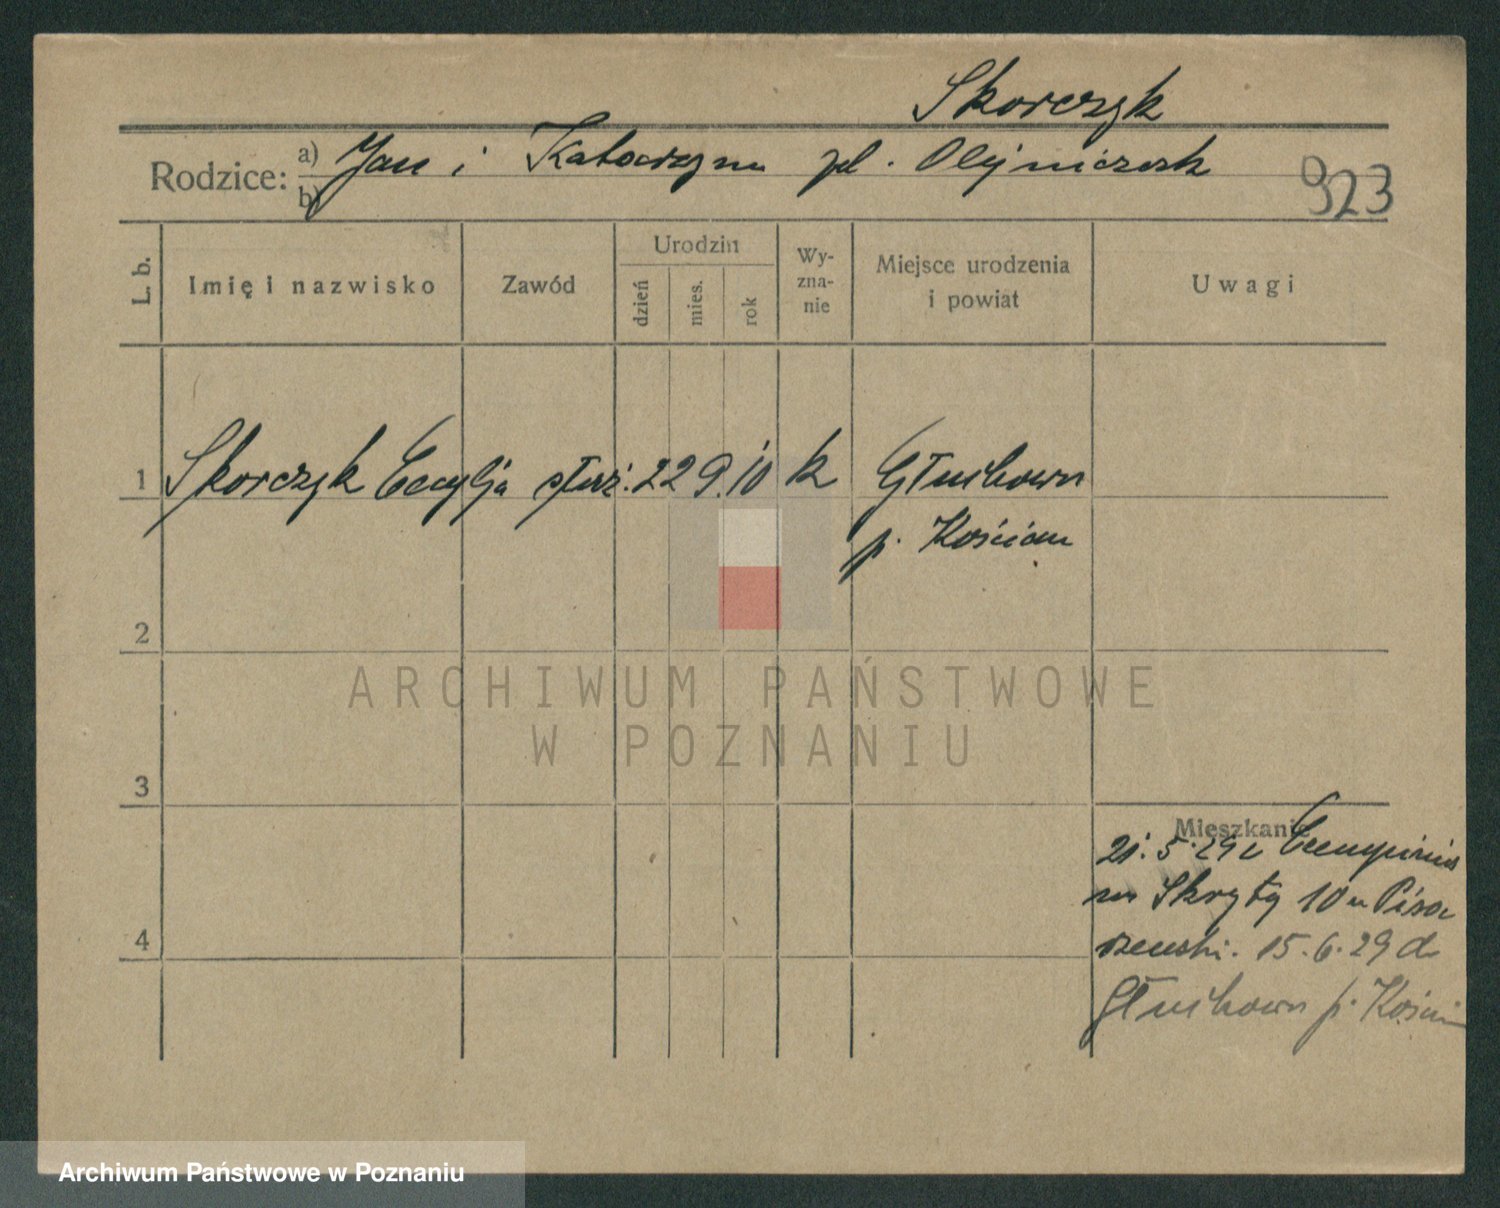 Skorczyk
Rodzice: a) Jan i Katarzyna zd. Olejniczak
b)
923
L. b. Imię i nazwisko Zawód Urodzin dzień mies. rok Wy-zna-nie Miejsce urodzenia i powiat Uwagi
1 Skorczyk Cecylja służ. 22 9. 10 k Głuchowo
p. Kościan
2
ARCHIWUM PAŃSTWOWE
W POZNANIU
3
Mieszkanie
21. 5. 29 z
na Skrytą 10 u
15. 6. 29 do
Głuchowo p. Kościan
4
Archiwum Państwowe w Poznaniu